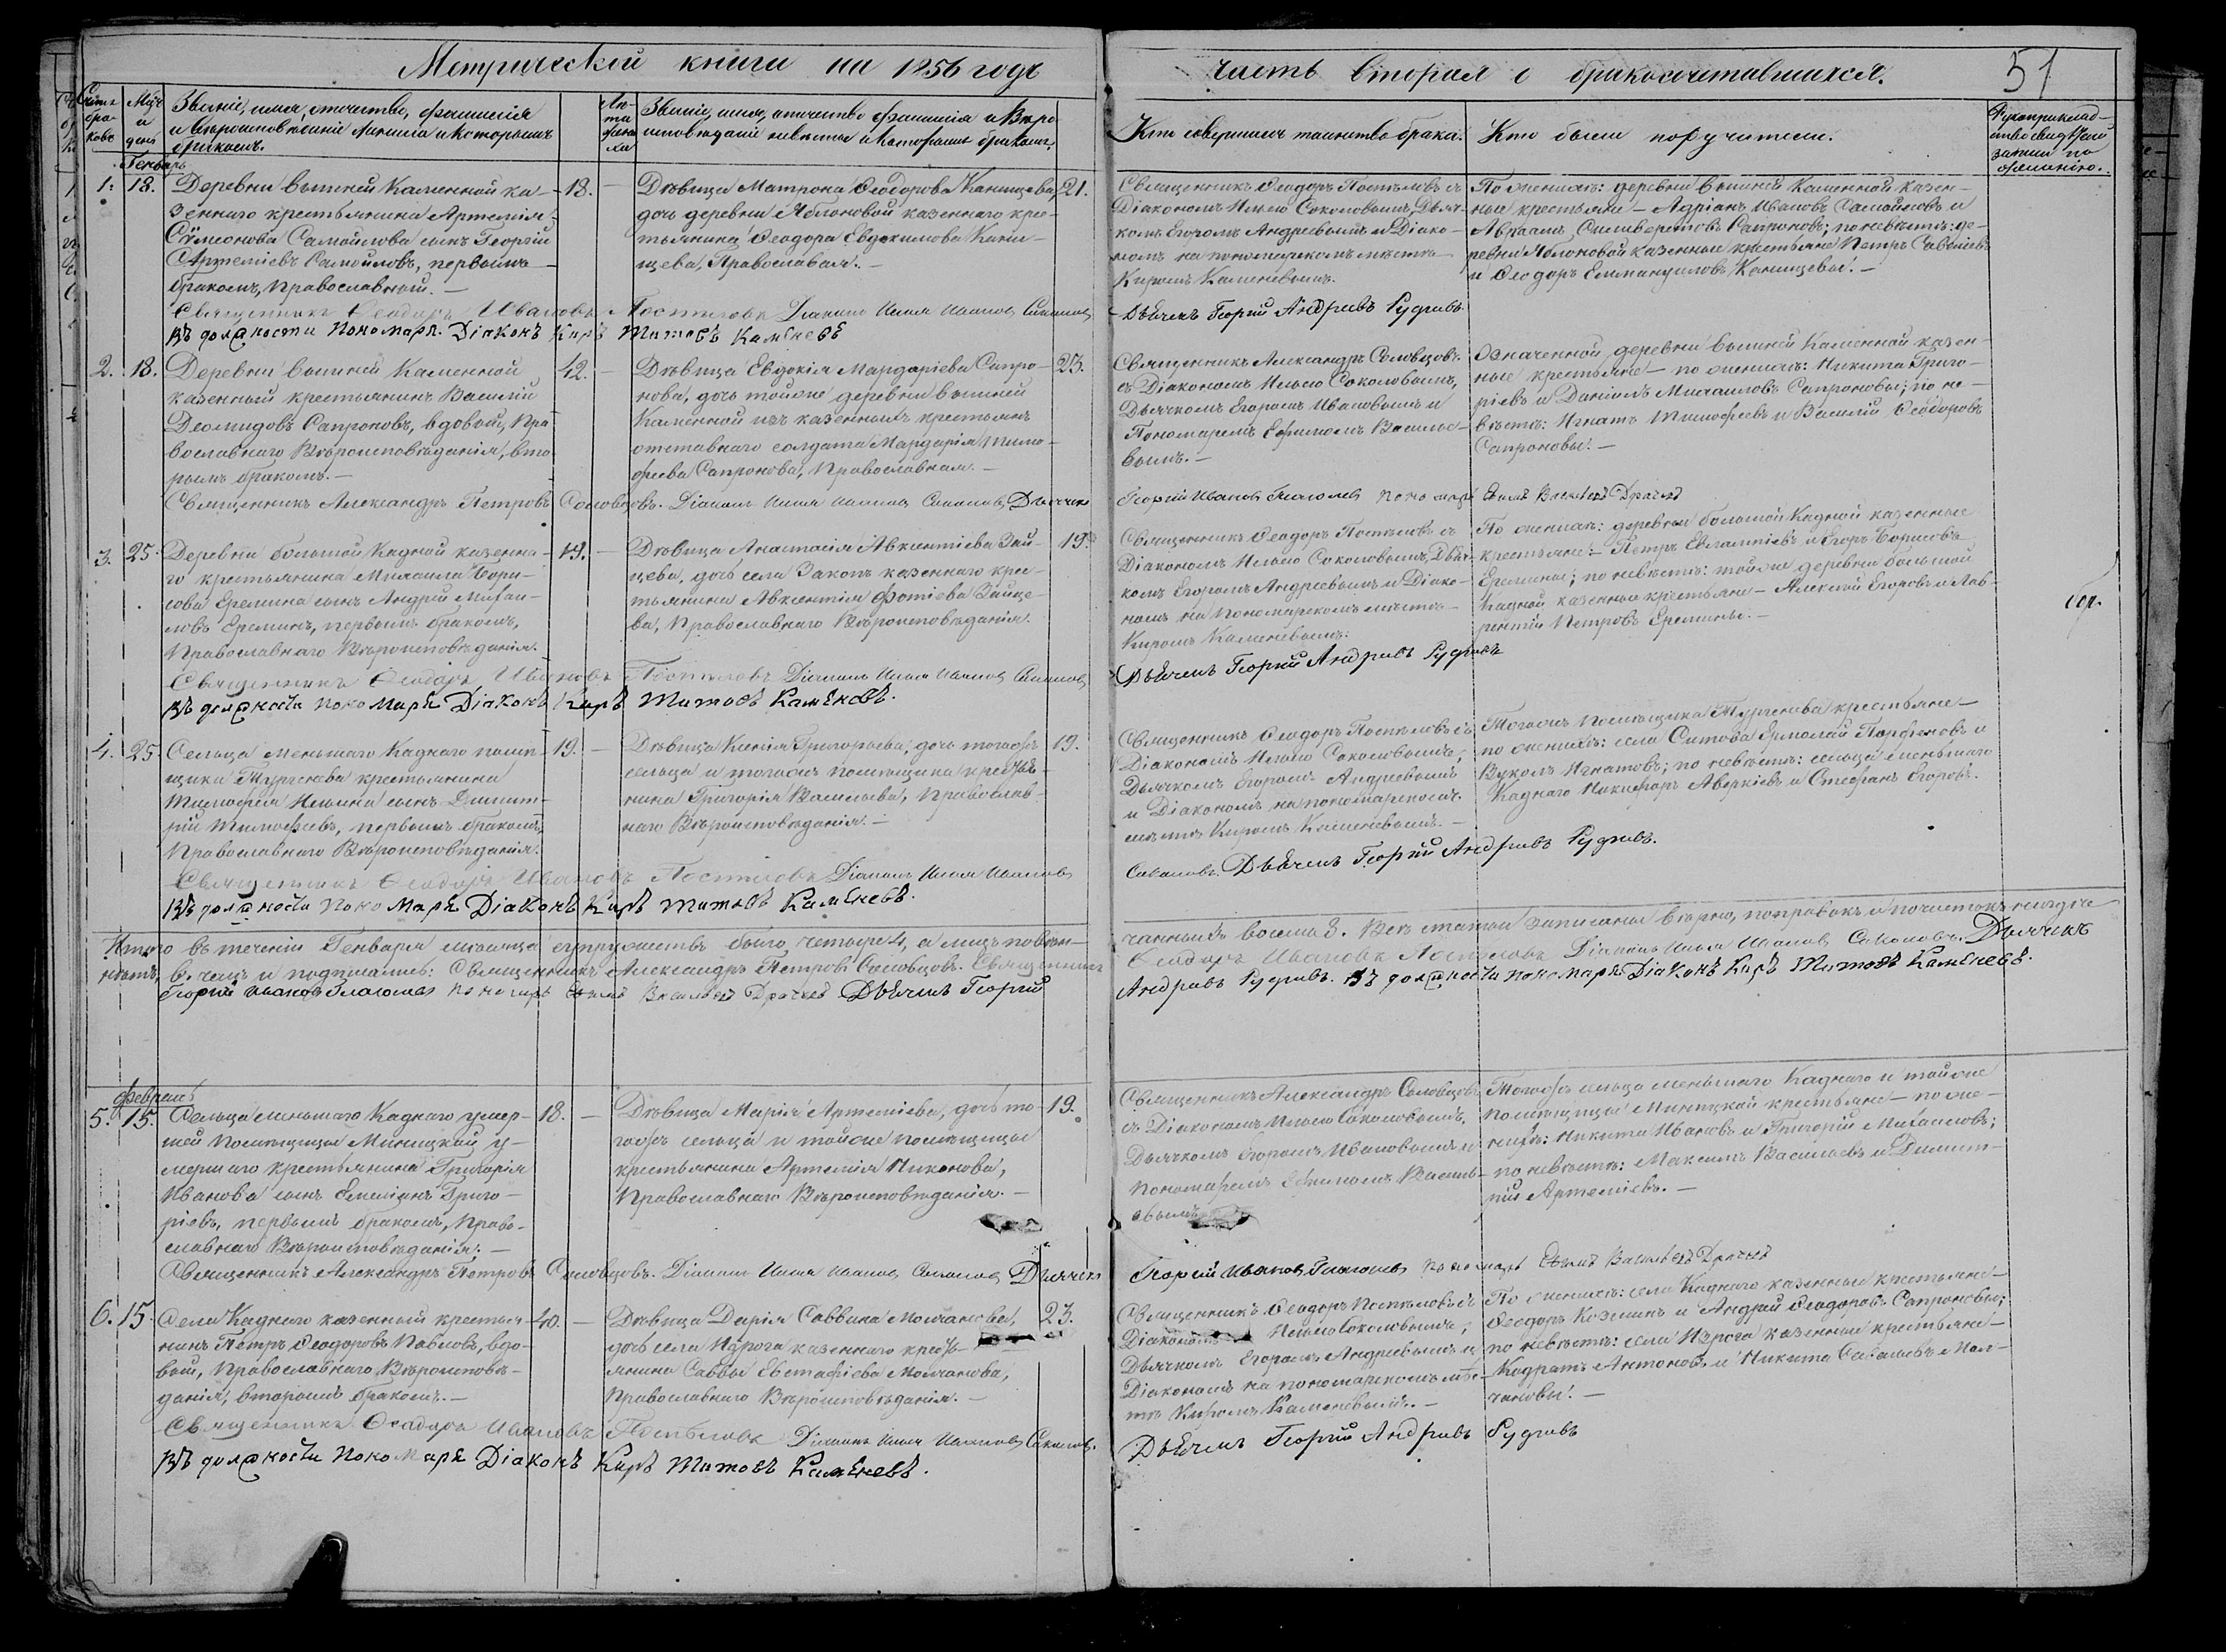 Метрической книги на 1856 годъ
часть вторая о бракосочетавшихся.
51
Счетъ браковъ
Мѣс. и день
Званіе, имя, отчество, фамилія
и вѣроисповѣданіе жениха и которымъ
бракомъ.
Званіе, имя, отчество, фамилія и вѣро-
исповѣданіе невѣсты и которымъ бракомъ.
Кто совершалъ таинство брака.
Кто были поручители.
Генварь
1. 18.
Деревни вышней Каменной ка-
зеннаго крестьянина Артемія
Сѵмеонова Самойлова сынъ Георгій
Артеміевъ Самойловъ, первымъ
бракомъ, Православный.
18.
Дѣвица Матрона Ѳеодорова Канищева,
дочь деревни Яблоновой казеннаго кре-
стьянина Ѳеодора Евдокимова Кани-
щева, Православная.
21.
Священникъ Ѳеодоръ Постѣловъ съ
Діакономъ Ильею Соколовымъ, Дьяч-
комъ Егоромъ Андреевымъ и Діако-
номъ на пономарскомъ мѣстѣ
Киромъ Каменевымъ.
По женихѣ: деревни вышней Каменной казен-
ные крестьяне – Адріанъ Ивановъ Самойловъ и
Авраамъ Сильверстовъ Сапроновъ; по невѣстѣ: де-
ревни Яблоновой казенные крестьяне Петръ Савві́евъ
и Ѳеодоръ Еммануиловъ Канищевы.
Священникъ Ѳеодоръ Ивановъ Постѣловъ Діаконъ Илья Ивановъ Соколовъ
Дьячекъ Георгій Андриевъ Рудневъ
Въ должности Пономаря Діаконъ Киръ Титовъ Каменевъ
2. 18.
Деревни вышней Каменной
казенный крестьянинъ Василій
Діомидовъ Сапроновъ, вдовый, Пра-
вославнаго Вѣроисповѣданія, вто-
рымъ бракомъ.
42.
Дѣвица Евдокія Мардаріева Сапро-
нова, дочь тойже деревни вышней
Каменной изъ казенныхъ крестьянъ
отставнаго солдата Мардарія Тимо-
феева Сапронова, Православная.
23.
Священникъ Александръ Соловцовъ
съ Діакономъ Ильею Соколовымъ,
Дьячкомъ Егоромъ Ивановымъ и
Пономаремъ Ефимомъ Василье-
вымъ.
Означенной деревни вышней Каменной казен-
ные крестьяне – по женихѣ: Никита Григо-
ріевъ и Даніилъ Михаиловъ Сапроновы; по не-
вѣстѣ: Игнатъ Тимофеевъ и Василій Ѳеодоровъ
Сапроновы.
Священникъ Александръ Петровъ Соловцовъ. Діаконъ Илья Ивановъ Соколовъ Дьячекъ
Георгій Ивановъ Глаголевъ пономарь Ефимъ Васильевъ
3. 25.
Деревни большой Кадной казенна-
го крестьянина Михаила Бори-
сова Еремина сынъ Андрей Михаи-
ловъ Ереминъ, первымъ бракомъ,
Православнаго Вѣроисповѣданія.
19.
Дѣвица Анастасія Авксентіева Зай-
цева, дочь села Закопъ казеннаго кре-
стьянина Авксентія Фотіева Зайце-
ва, Православнаго Вѣроисповѣданія.
19.
Священникъ Ѳеодоръ Постѣловъ съ
Діакономъ Ильею Соколовымъ, Дьяч-
комъ Егоромъ Андреевымъ и Діако-
номъ на пономарскомъ мѣстѣ
Киромъ Каменевымъ.
По женихѣ: деревни большой Кадной казенные
крестьяне – Петръ Евлампіевъ и Егоръ Борисовъ
Еремины; по невѣстѣ: тойже деревни большой
Кадной казенные крестьяне – Алексѣй Егоровъ и Лав-
рентій Петровъ Еремины.
Священникъ Ѳеодоръ Ивановъ Постѣловъ Діаконъ Илья Ивановъ Соколовъ
Дьячекъ Георгій Андриевъ Рудневъ
Въ должности Пономаря Діаконъ Киръ Титовъ Каменевъ.
4. 25.
Сельца меньшаго Каднаго помѣ-
щика Тургенева крестьянина
Тимофея Ильина сынъ Димит-
рій Тимофеевъ, первымъ бракомъ,
Православнаго Вѣроисповѣданія.
19.
Дѣвица Ксенія Григорьева, дочь тогожъ
сельца и тогожъ помѣщика крестья-
нина Григорія Васильева, Православ-
наго Вѣроисповѣданія.
19.
Священникъ Ѳеодоръ Постѣловъ съ
Діакономъ Ильею Соколовымъ,
Дьячкомъ Егоромъ Андреевымъ
и Діакономъ на пономарскомъ
мѣстѣ Киромъ Каменевымъ.
Тогожъ помѣщика Тургенева крестьяне –
по женихѣ: села Ситова Ермолай Парфеновъ и
Вуколъ Игнатовъ; по невѣстѣ: сельца меньшаго
Каднаго Никифоръ Аверкіевъ и Стефанъ Егоровъ.
Священникъ Ѳеодоръ Ивановъ Постѣловъ Діаконъ Илья Ивановъ
Соколовъ. Дьячекъ Георгій Андриевъ Рудневъ.
Въ должности Пономаря Діаконъ Киръ Титовъ Каменевъ.
Итого въ теченіи Генваря мѣсяца супружествъ было четыре 4, а лицъ повѣн-
чанныхъ восемь 8. Всѣ статьи записаны вѣрно, поправокъ и почистокъ
въ чемъ и подписались: Священникъ Александръ Петровъ Соловцовъ. Священникъ
Ѳеодоръ Ивановъ Постѣловъ Діаконъ Илья Ивановъ Соколовъ. Дьячекъ
Георгій Ивановъ Глаголевъ пономарь Ефимъ Васильевъ Дьячекъ Георгій
Андриевъ Рудневъ. Въ должности пономаря Діаконъ Киръ Титовъ Каменевъ.
Февраль
5. 15.
Сельца меньшаго Каднаго умер-
шей помѣщицы Миницкой у-
мершаго крестьянина Григорія
Иванова сынъ Емеліянъ Григо-
ріевъ, первымъ бракомъ, Право-
славнаго Вѣроисповѣданія.
18.
Дѣвица Марія Артеміева, дочь то-
гожъ сельца и тойже помѣщицы
крестьянина Артемія Никонова,
Православнаго Вѣроисповѣданія.
19.
Священникъ Александръ Соловцовъ
съ Діакономъ Ильею Соколовымъ,
Дьячкомъ Егоромъ Ивановымъ и
Пономаремъ Ефимомъ Василь-
евымъ
Тогожъ сельца меньшаго Каднаго и тойже
помѣщицы Миницкой крестьяне – по же-
нихѣ: Никита Ивановъ и Григорій Михаиловъ;
по невѣстѣ: Максимъ Васильевъ и Димит-
рій Артеміевъ.
Священникъ Александръ Петровъ Соловцовъ. Діаконъ Илья Ивановъ Соколовъ Дьячекъ
Георгій Ивановъ Глаголевъ пономарь Ефимъ Васильевъ
6. 15.
Села Каднаго казенный крестья-
нинъ Петръ Ѳеодоровъ Павловъ, вдо-
вый, Православнаго Вѣроисповѣ-
данія, вторымъ бракомъ.
40.
Дѣвица Дарія Саввина Молчанова,
дочь села Изрога казеннаго кресть-
янина Саввы Евстафіева Молчанова,
Православнаго Вѣроисповѣданія.
23.
Священникъ Ѳеодоръ Постѣловъ съ
Діакономъ Ильею Соколовымъ,
Дьячкомъ Егоромъ Андреевымъ и
Діакономъ на пономарскомъ мѣс-
тѣ Киромъ Каменевымъ.
По женихѣ: села Каднаго казенные крестьяне
Ѳеодоръ Козминъ и Андрей Ѳеодоровъ Сапроновы;
по невѣстѣ: села Изрога казенные крестьяне –
Кодратъ Антоновъ и Никита Савельевъ Мол-
чановы.
Священникъ Ѳеодоръ Ивановъ Постѣловъ Діаконъ Илья Ивановъ Соколовъ.
Дьячекъ Георгій Андриевъ Рудневъ
Въ должности Пономаря Діаконъ Киръ Титовъ Каменевъ.